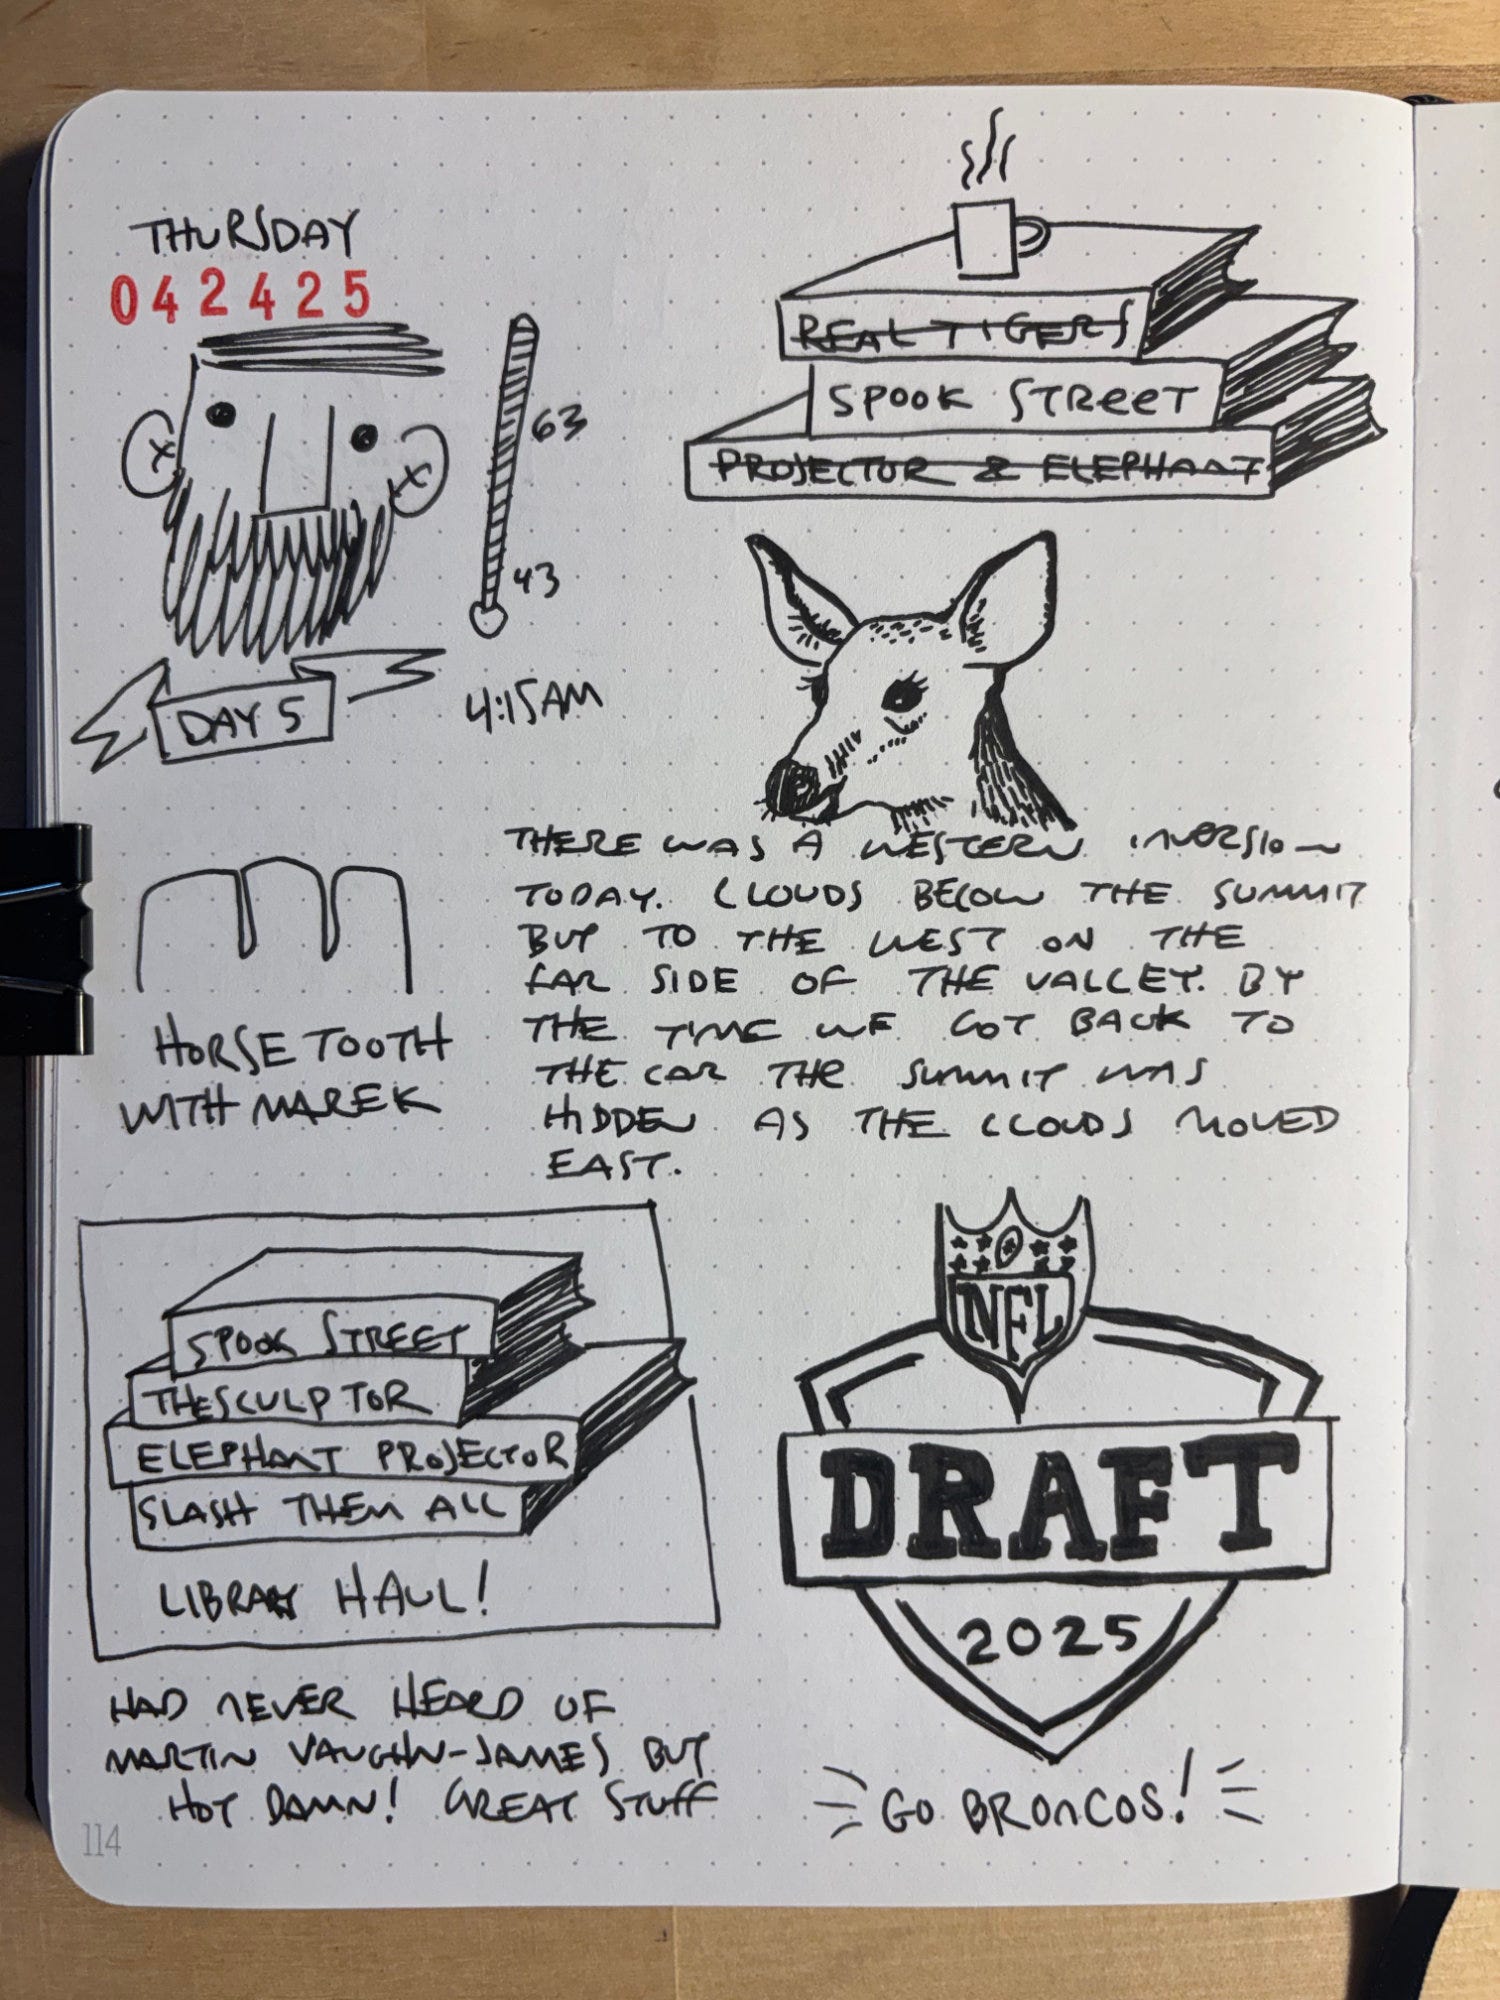 THURSDAY
042425
63
43
4:15AM
DAY 5
REAL TIGERS
SPOOK STREET
PROJECTOR & ELEPHANT
THERE WAS A WESTERN INVERSION
TODAY. CLOUDS BELOW THE SUMMIT
BUT TO THE WEST ON THE
FAR SIDE OF THE VALLEY. BY
THE TIME WE GOT BACK TO
THE CAR THE SUMMIT WAS
HIDDEN AS THE CLOUDS MOVED
EAST.
HORSETOOTH
WITH MAREK
SPOOK STREET
THE SCULPTOR
ELEPHANT PROJECTOR
SLASH THEM ALL
LIBRARY HAUL!
HAD NEVER HEARD OF
MARTIN VAUGHN-JAMES BUT
HOT DAMN! GREAT STUFF
NFL
DRAFT
2025
GO BRONCOS!
114